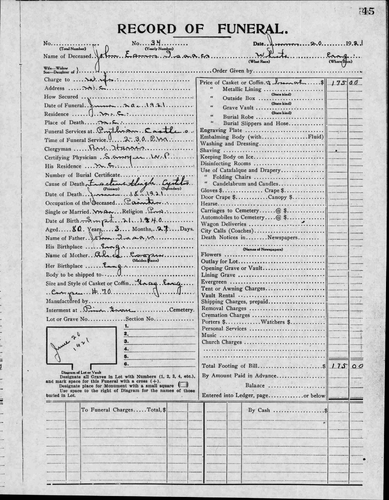 45
RECORD OF FUNERAL.
No. No. 34 Date, June 20 1921
(Total Number) (Yearly Number)
Name of Deceased, John Isaacs White Eng.
(What Race) (Where Born)
Order Given by
Charge to Wife
Address N.C.
How Secured
Date of Funeral June 20, 1921
Residence N.C.
Place of Death N.C.
Funeral Services at Pythian Castle
Time of Funeral Service 2-30 P.M.
Clergyman Rev. Harris
Certifying Physician Sawyer W.P.
His Residence N.C.
Number of Burial Certificate
Cause of Death Fracture thigh
Date of Death June 18, 1921
Occupation of the Deceased Painter
Single or Married Mar Religion Pro.
Date of Birth Sept 21, 1840
Aged 80 Years, 3 Months, 27 Days
Name of Father John Isaacs
His Birthplace Eng.
Name of Mother Alice Cooper
Her Birthplace Eng.
Body to be shipped to
Size and Style of Casket or Coffin Gray
H. 70
Manufactured by
Interment at Cemetery.
Lot or Grave No. Section No.
June 20
1921
1.
2.
3.
4.
5.
6.
7.
Diagram of Lot or Vault
Designate all Graves in Lot with Numbers (1, 2, 3, 4, etc.),
and mark space for this Funeral with a cross (+).
Designate place for Monument with a small square
Use space to the right of Diagram for names of those
buried in Lot.
Price of Casket or Coffin & burial 175 00
" Metallic Lining
" Outside Box
" Grave Vault
" Burial Robe
" Burial Slippers and Hose
Engraving Plate
Embalming Body (with Fluid)
Washing and Dressing
Shaving
Keeping Body on Ice
Disinfecting Rooms
Use of Catafalque and Drapery
" Folding Chairs
" Candelabrum and Candles
Gloves $ Crape $
Door Crape $ Canopy $
Hearse
Carriages to Cemetery @ $
Automobiles to Cemetery @ $
Wagon Deliveries
City Calls (Coaches)
Death Notices in Newspapers
(Names of Newspapers)
Flowers
Outlay for Lot
Opening Grave or Vault
Lining Grave
Evergreen
Tent or Awning Charges
Vault Rental
Shipping Charges, prepaid
Removal Charges
Cremation Charges
Porters $ Watchers $
Personal Services
Music
Church Charges
Total Footing of Bill $ 175 00
By Amount Paid in Advance
Balance
Entered into Ledger, page or below.
To Funeral Charges
By Cash